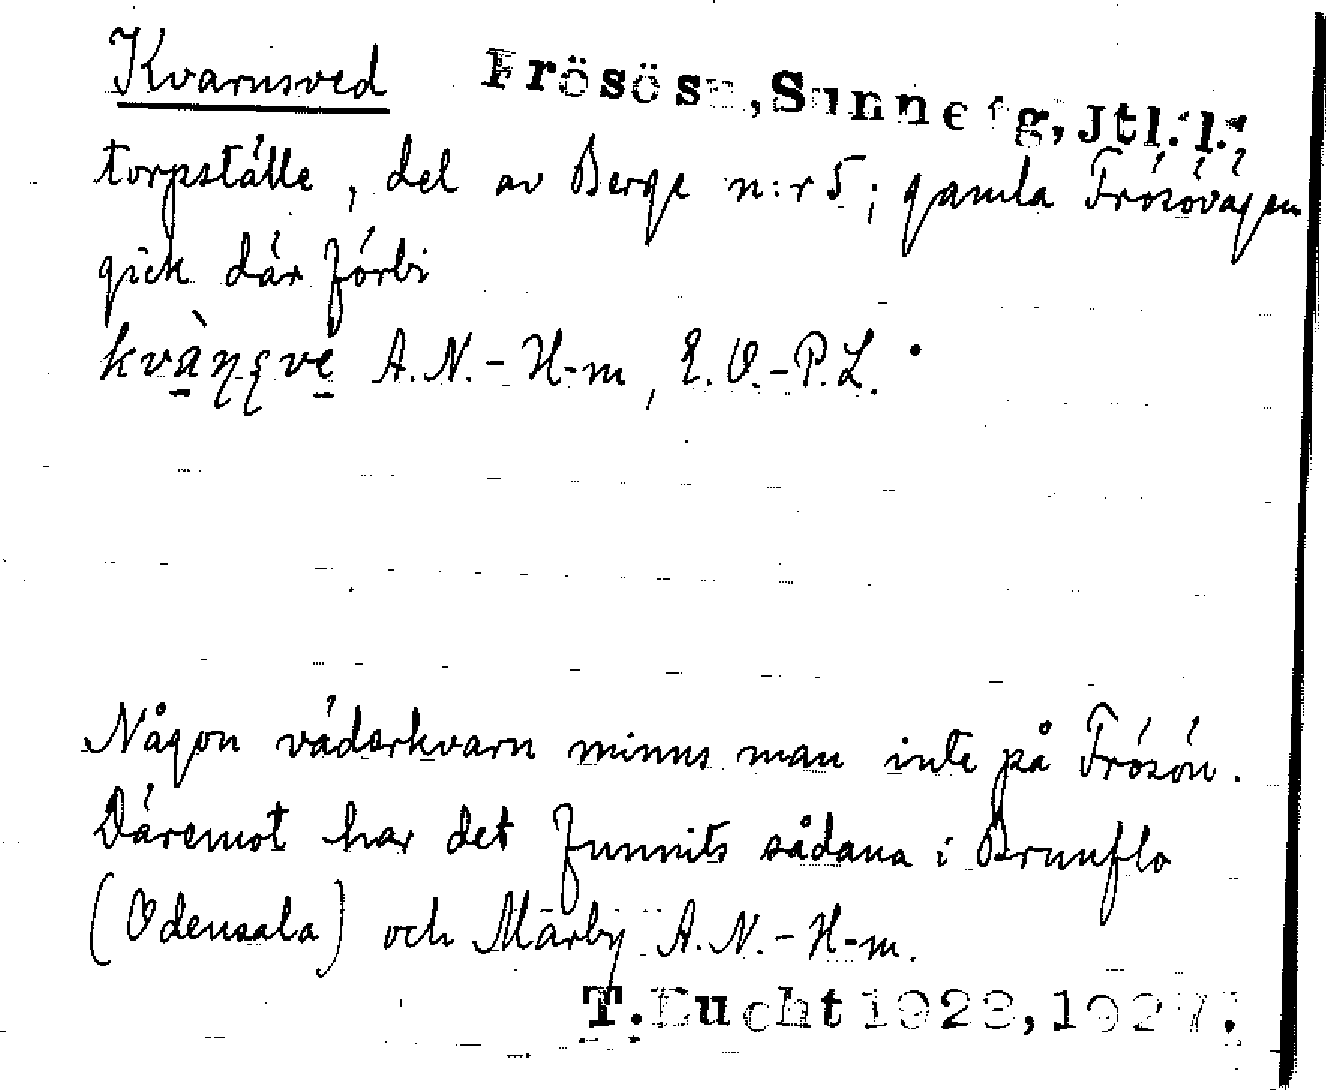 Kvarnsved Frösö sn, Sunne tg, Jtl. l.
torpställe, del av Berge n:r 5; gamla Frösövägen
gick där förbi
A.N.-H-m, E.O.-P.L.
Någon väderkvarn minns man inte på Frösön.
Däremot har det funnits sådana i Brunflo
(Odensala) och Marby A.N.-H-m.
T. Bucht 1928, 1927.